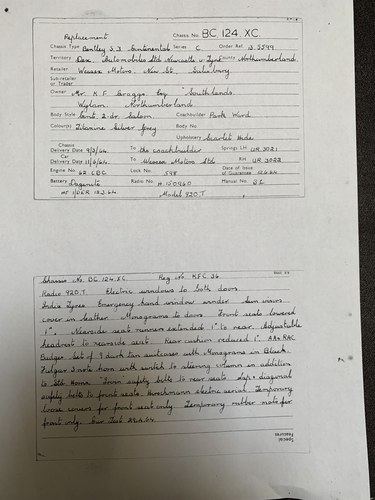 Replacement
Chassis No. BC. 124. XC.
Chassis Type Bentley S.3 Continental Series C Order Ref. B.
Territory Automobiles Ltd Newcastle u Tyne County Northumberland.
Retailer Wessex Motors. New St., Salisbury
Sub-retailer
or Trader
Owner Mr. K.F. Esq "Southlands"
Wylam Northumberland
Body Style Cont. 2. dr. Saloon Coachbuilder Park Ward
Colour(s) Silver Grey Body No.
Upholstery Scarlet Hide
Chassis
Delivery Date To the coachbuilder Springs LH UR.3021
Car
Delivery Date To Wessex Motors Ltd RH UR.3022
Date of Issue
of Guarantee
Engine No. 62. CBC Lock No. Manual No.
Battery Radio No.
Model 920.T
Chassis No. BC. 124. XC. Reg. No. KFC 36
Radio 920.T. Electric windows to both doors.
India Tyres. Emergency hand window winder. Sun visors
cover in leather. Monograms to doors. Front seats lowered
1". Nearside seat runners extended 1" to rear. Adjustable
headrest to nearside seat. Rear cushion reduced 1". AA & RAC
Badges. Set of 7 dark tan suitcases with Monograms in Black.
Fulgor 3 note horn with switch to steering column in addition
to Std. Horns. Irvin safety belts to rear seats. Lap & diagonal
safety belts to front seats. Hirschmann electric aerial. Temporary
loose covers for front seat only. Temporary rubber mats for
front only.
Special
Features